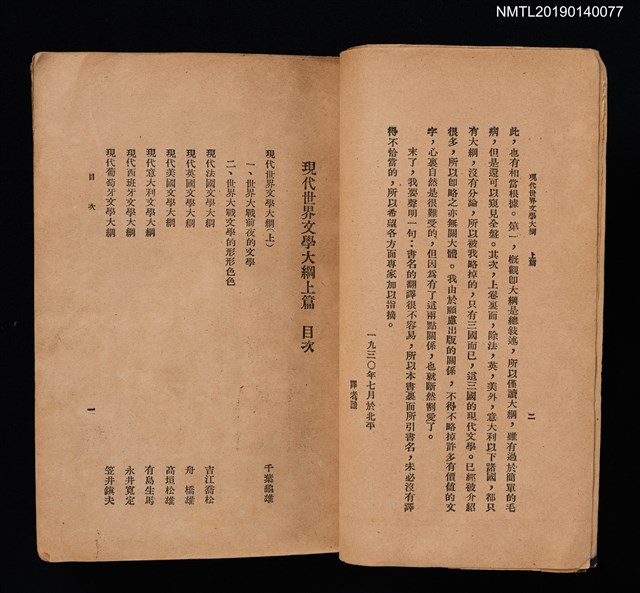 NMTL20190140077
現代世界文學大綱 上篇
二
此，也有相當根據。第一，概觀卽大綱是總敍述，所以僅讀大綱，雖有過於簡單的毛
病，但是還可以窺見全盤。其次，上卷裏面，除法，英，美外，意大利以下諸國，都只
有大綱，沒有分論，所以被我略掉的，只有三國而已，這三國的現代文學。已經被介紹
很多，所以卽略之亦無關大體。我由於顧慮出版的關係，不得不略掉許多有價值的文
字，心裏自然是很難受的，但因爲有了這兩點關係，也就斷然割愛了。
末了，我要聲明一句：書名的翻譯很不容易，所以本書裏面所引書名，未必沒有譯
得不恰當的，所以希望各方面專家加以指摘。
一九三〇年七月於北平
譯者識
現代世界文學大綱上篇 目次
現代世界文學大綱（上） 千葉龜雄
一、世界大戰前夜的文學
二、世界大戰文學的形形色色
現代法國文學大綱 吉江喬松
現代英國文學大綱 舟橋雄
現代美國文學大綱 高垣松雄
現代意大利文學大綱 有島生馬
現代西班牙文學大綱 永井寬定
現代葡萄牙文學大綱 笠井鎭夫
目次
一